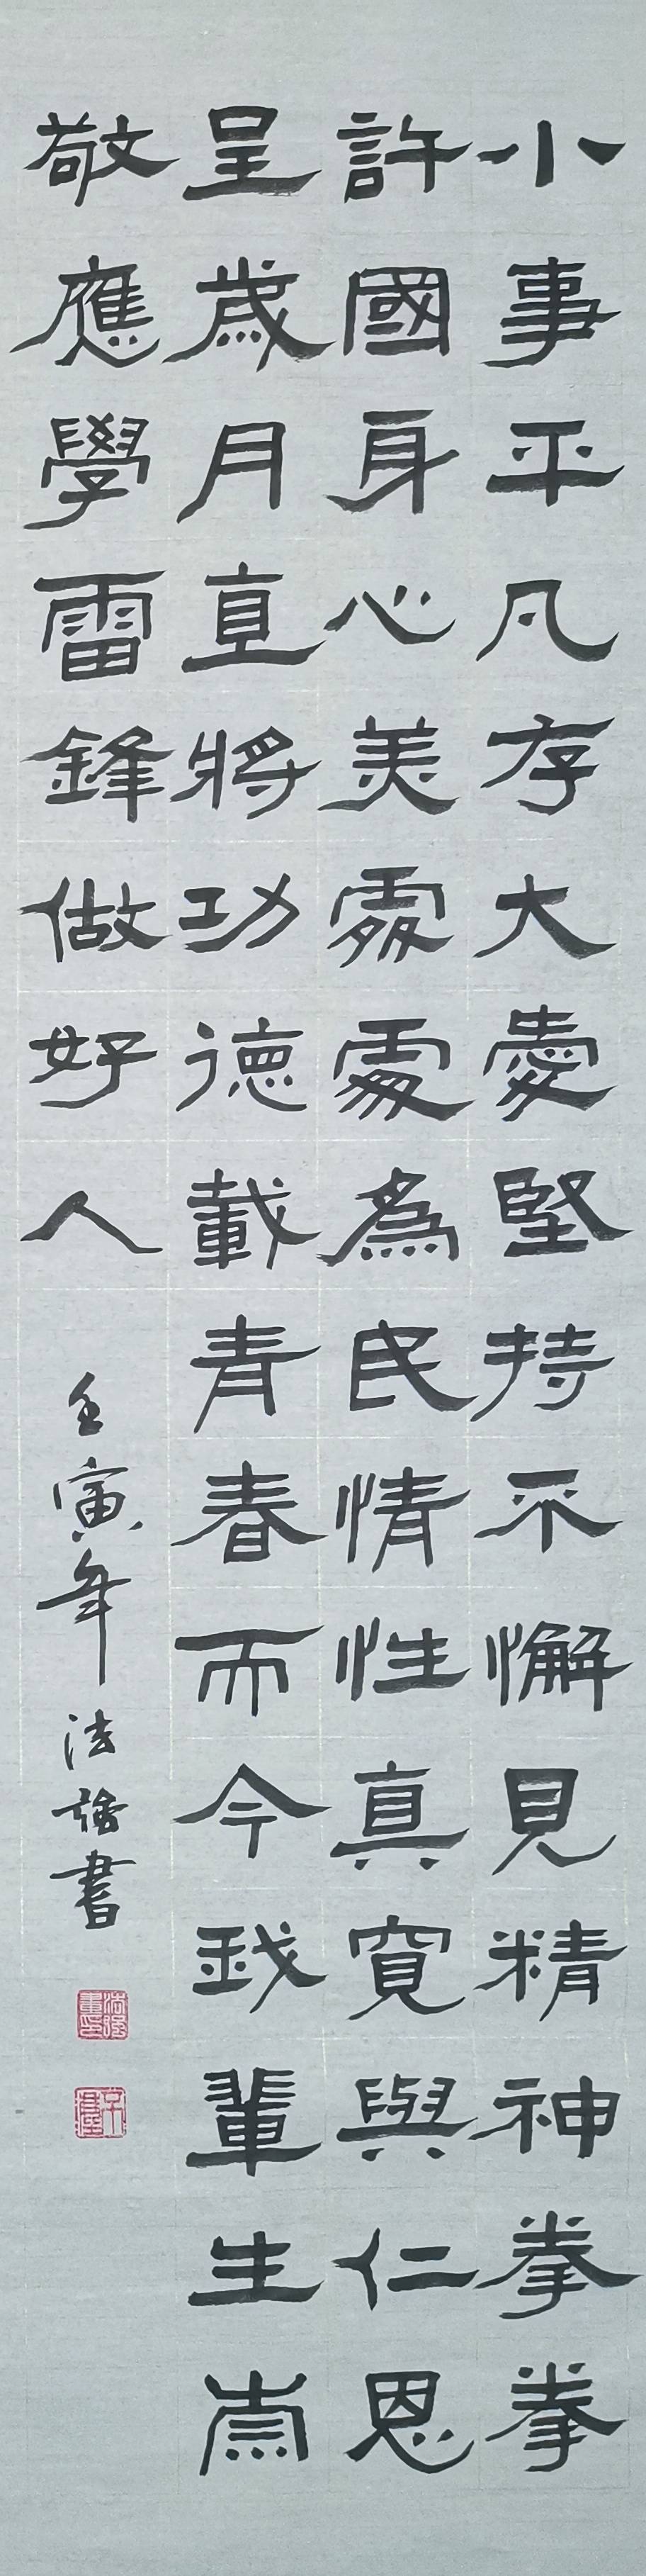 小事平凡存大愛堅持不懈見精神拳拳
許國身心美處處為民情性真寬與仁恩
呈歲月直將功德載青春而今我輩生崇
敬應學雷鋒做好人
壬寅年法強書